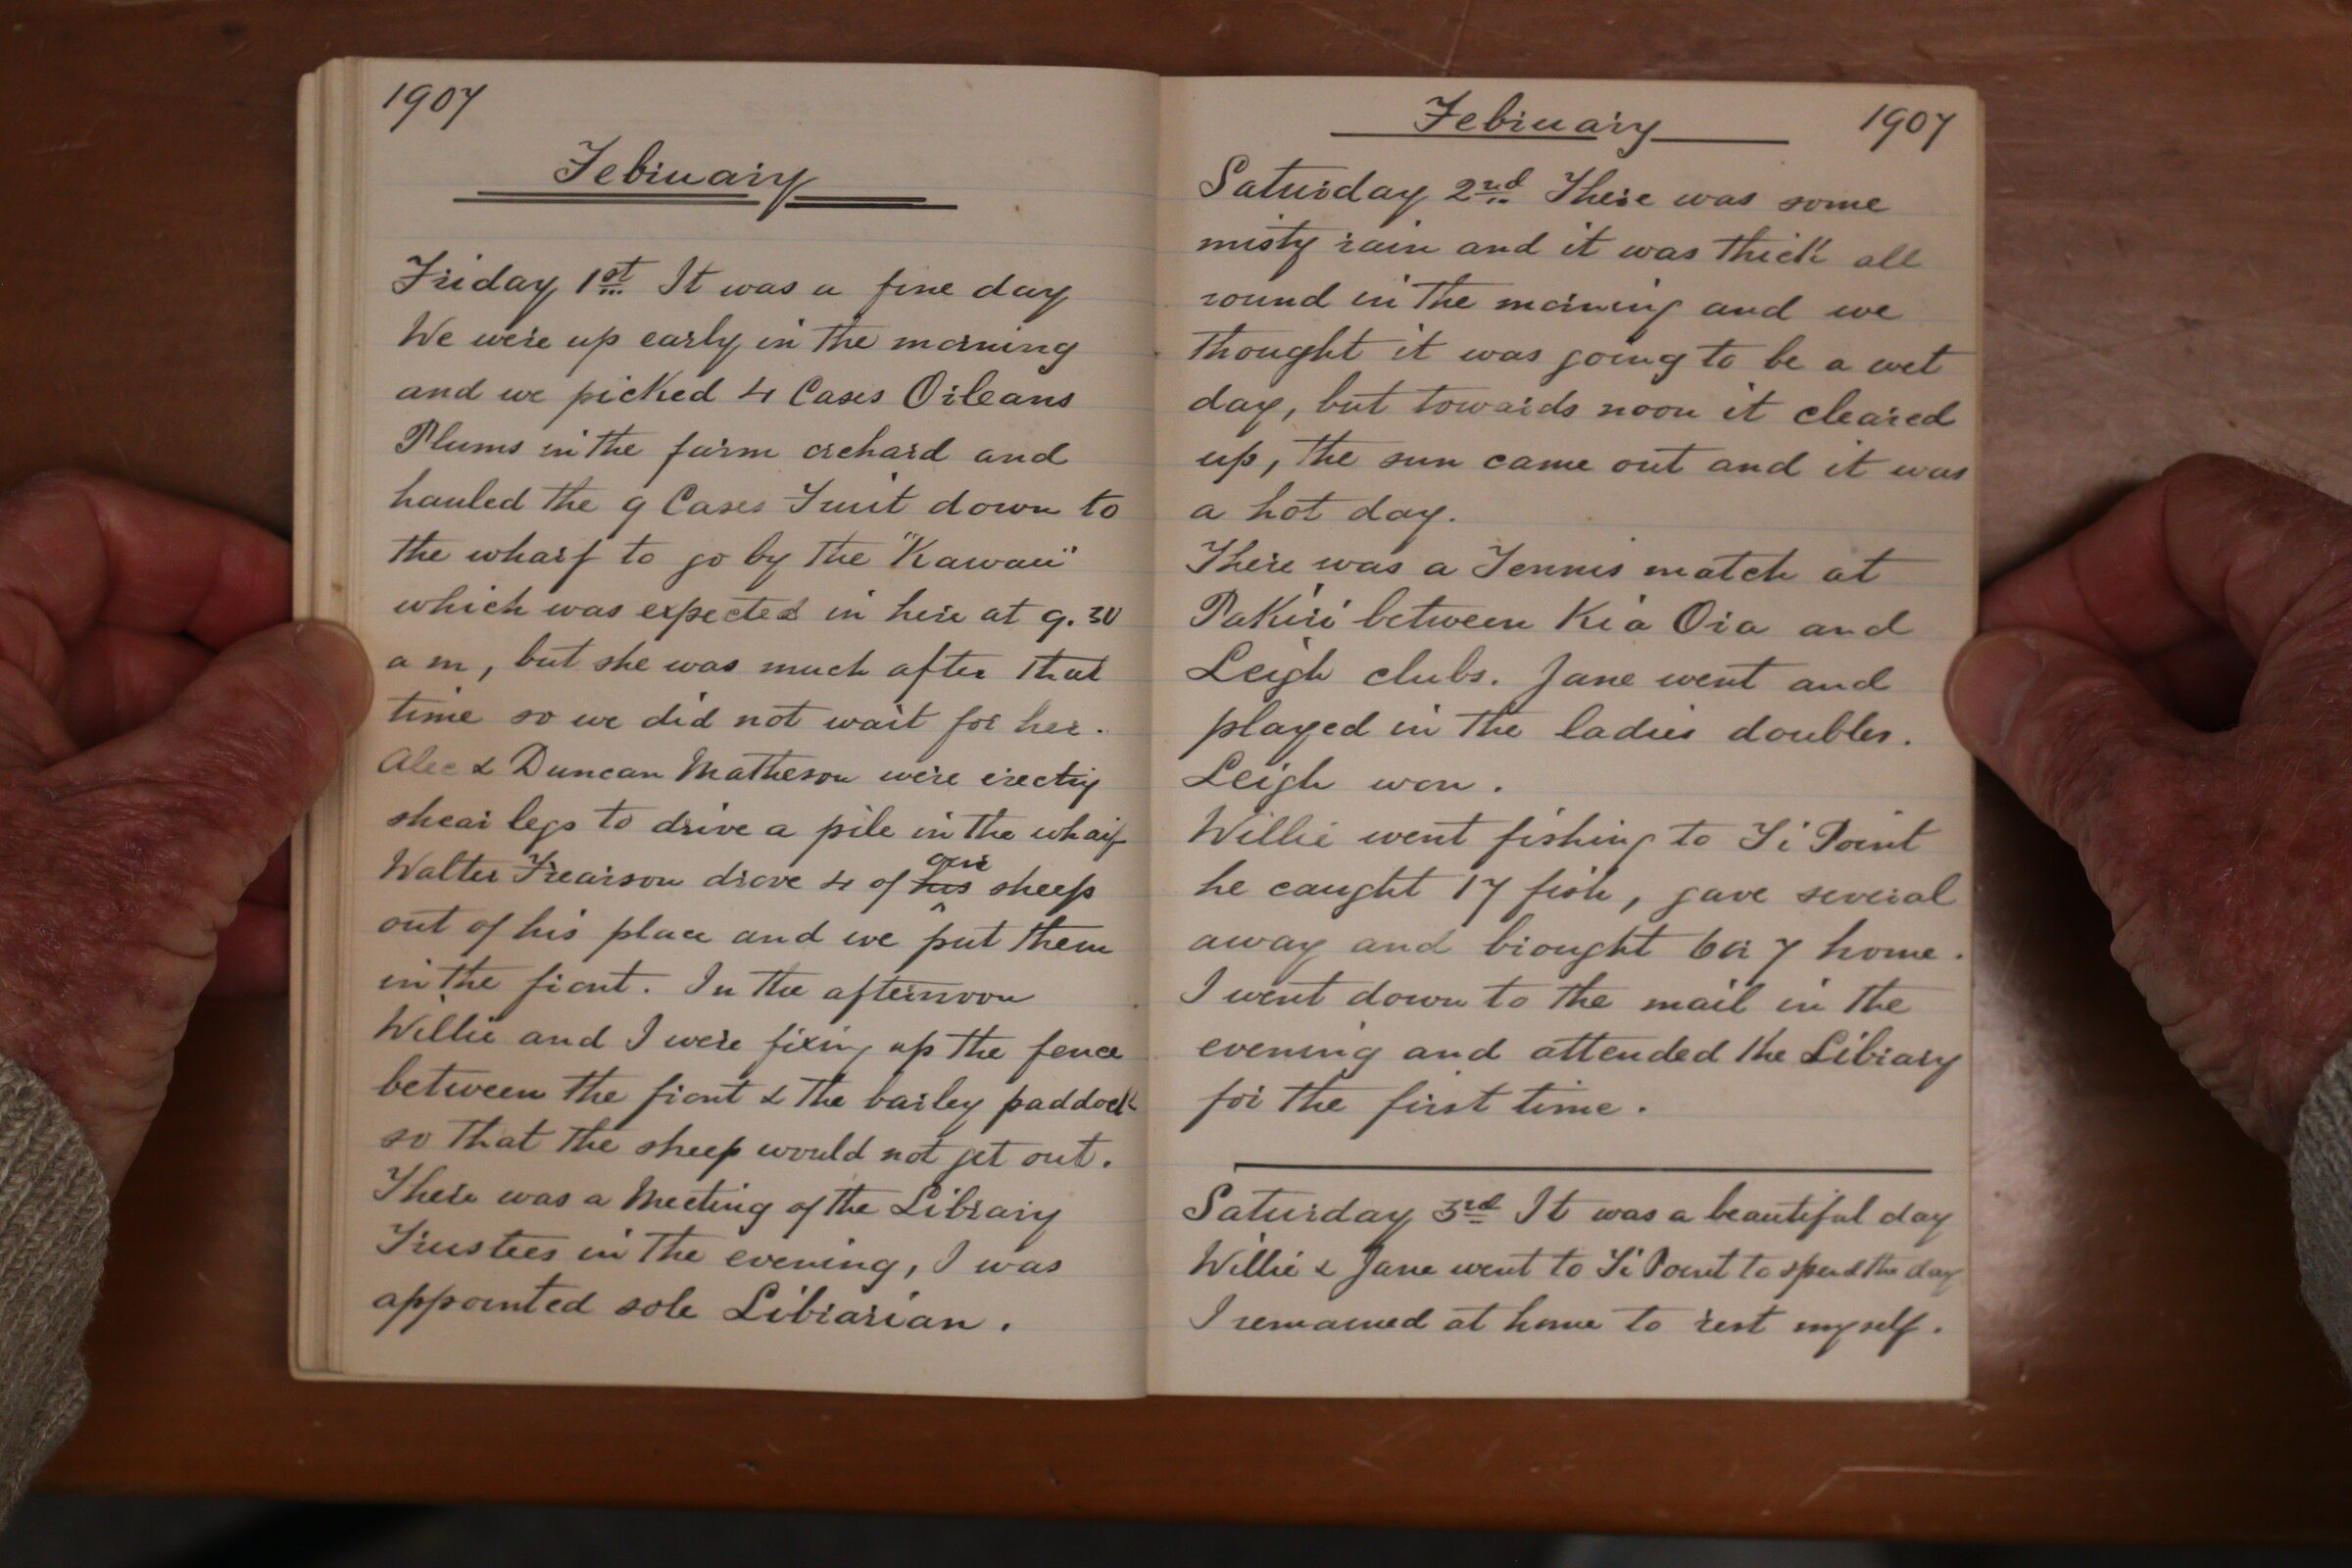 1907
February
Friday 1st It was a fine day
We were up early in the morning
and we picked 4 Cases Orleans
Plums in the farm orchard and
hauled the 9 Cases Fruit down to
the wharf to go by the "Kawau"
which was expected in here at 9.30
a m, but she was much after that
time so we did not wait for her.
Alec & Duncan Matheson were erecting
shear legs to drive a pile in the wharf
our
Walter Frearson drove 4 of his sheep
out of his place and we put them
in the front. In the afternoon
Willie and I were fixing up the fence
between the front & the barley paddock
so that the sheep would not get out.
There was a Meeting of the Library
Trustees in the evening, I was
appointed sole Librarian.
February 1907
Saturday 2nd There was some
misty rain and it was thick all
round in the morning and we
thought it was going to be a wet
day, but towards noon it cleared
up, the sun came out and it was
a hot day.
There was a Tennis match at
Pakiri between Kia Ora and
Leigh clubs. Jane went and
played in the ladies doubles.
Leigh won.
Willie went fishing to Ti Point
he caught 17 fish, gave several
away and brought 6 or 7 home.
I went down to the mail in the
evening and attended the Library
for the first time.
Saturday 3rd It was a beautiful day
Willie & Jane went to Ti Point to spend the day
I remained at home to rest myself.